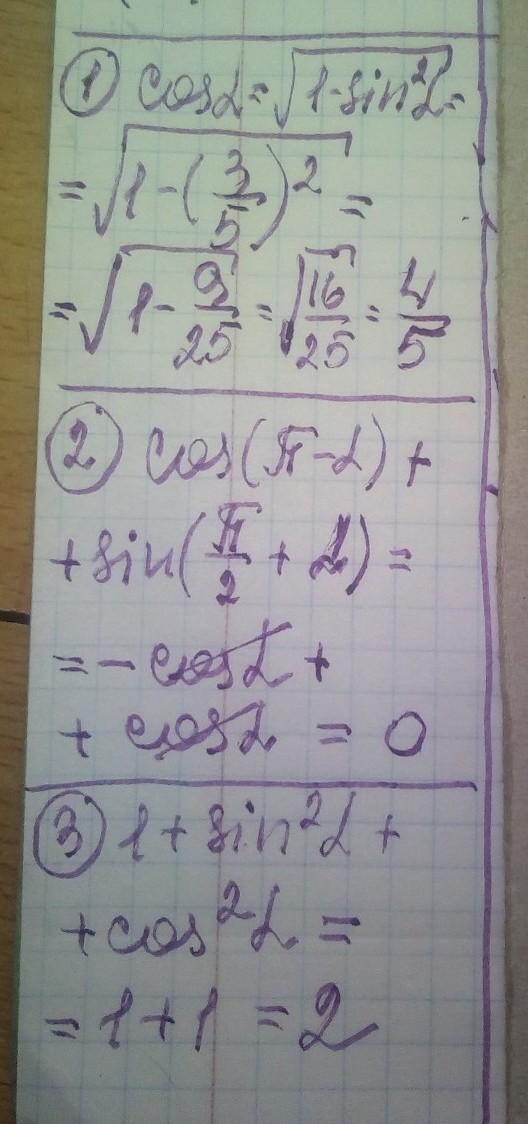 ① cosα = √(1-sin²α) =
= √(1-(3/5)²) =
= √(1-9/25) = √(16/25) = 4/5
② cos(π-α) +
+ sin(π/2 + α) =
= - cosα +
+ cosα = 0
③ 1 + sin²α +
+ cos²α =
= 1 + 1 = 2